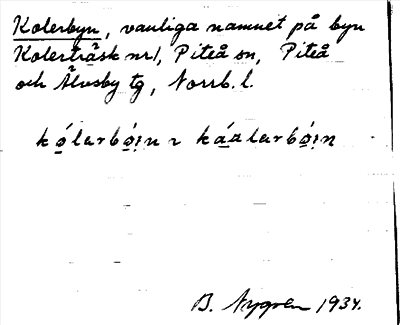 Kolerbyn, vanliga namnet på byn
Kolerträsk nr 1, Piteå sn, Piteå
och Älvsby tg, Norrb. l.
kó̱larbó̱i̱n ~ ká̱alarbó̱i̱n
B. Nygren 1934.